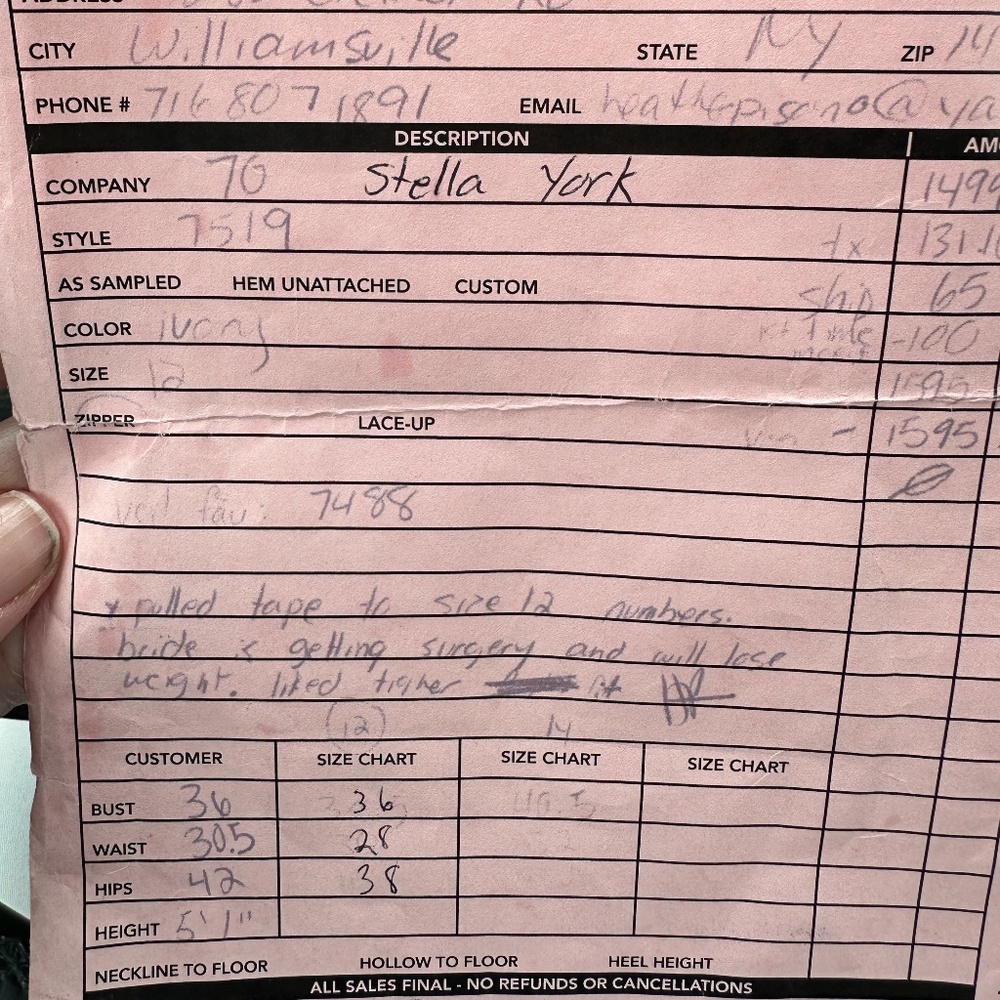 ADDRESS
CITY Williamsville STATE NY ZIP 14
PHONE # 716 807 1891 EMAIL heatherpisano@ya
DESCRIPTION AM
COMPANY 70 Stella York 1499
STYLE 7519 tx 131.1
AS SAMPLED HEM UNATTACHED CUSTOM ship 65
COLOR ivory -100
SIZE 12 1595
ZIPPER LACE-UP - 1595
fav: 7488
* pulled tape to size 12 numbers.
bride is getting surgery and will lose
weight. liked tigher fit
12 14
CUSTOMER SIZE CHART SIZE CHART SIZE CHART
BUST 36 36
WAIST 30.5 28
HIPS 42 38
HEIGHT 5'1"
NECKLINE TO FLOOR HOLLOW TO FLOOR HEEL HEIGHT
ALL SALES FINAL - NO REFUNDS OR CANCELLATIONS